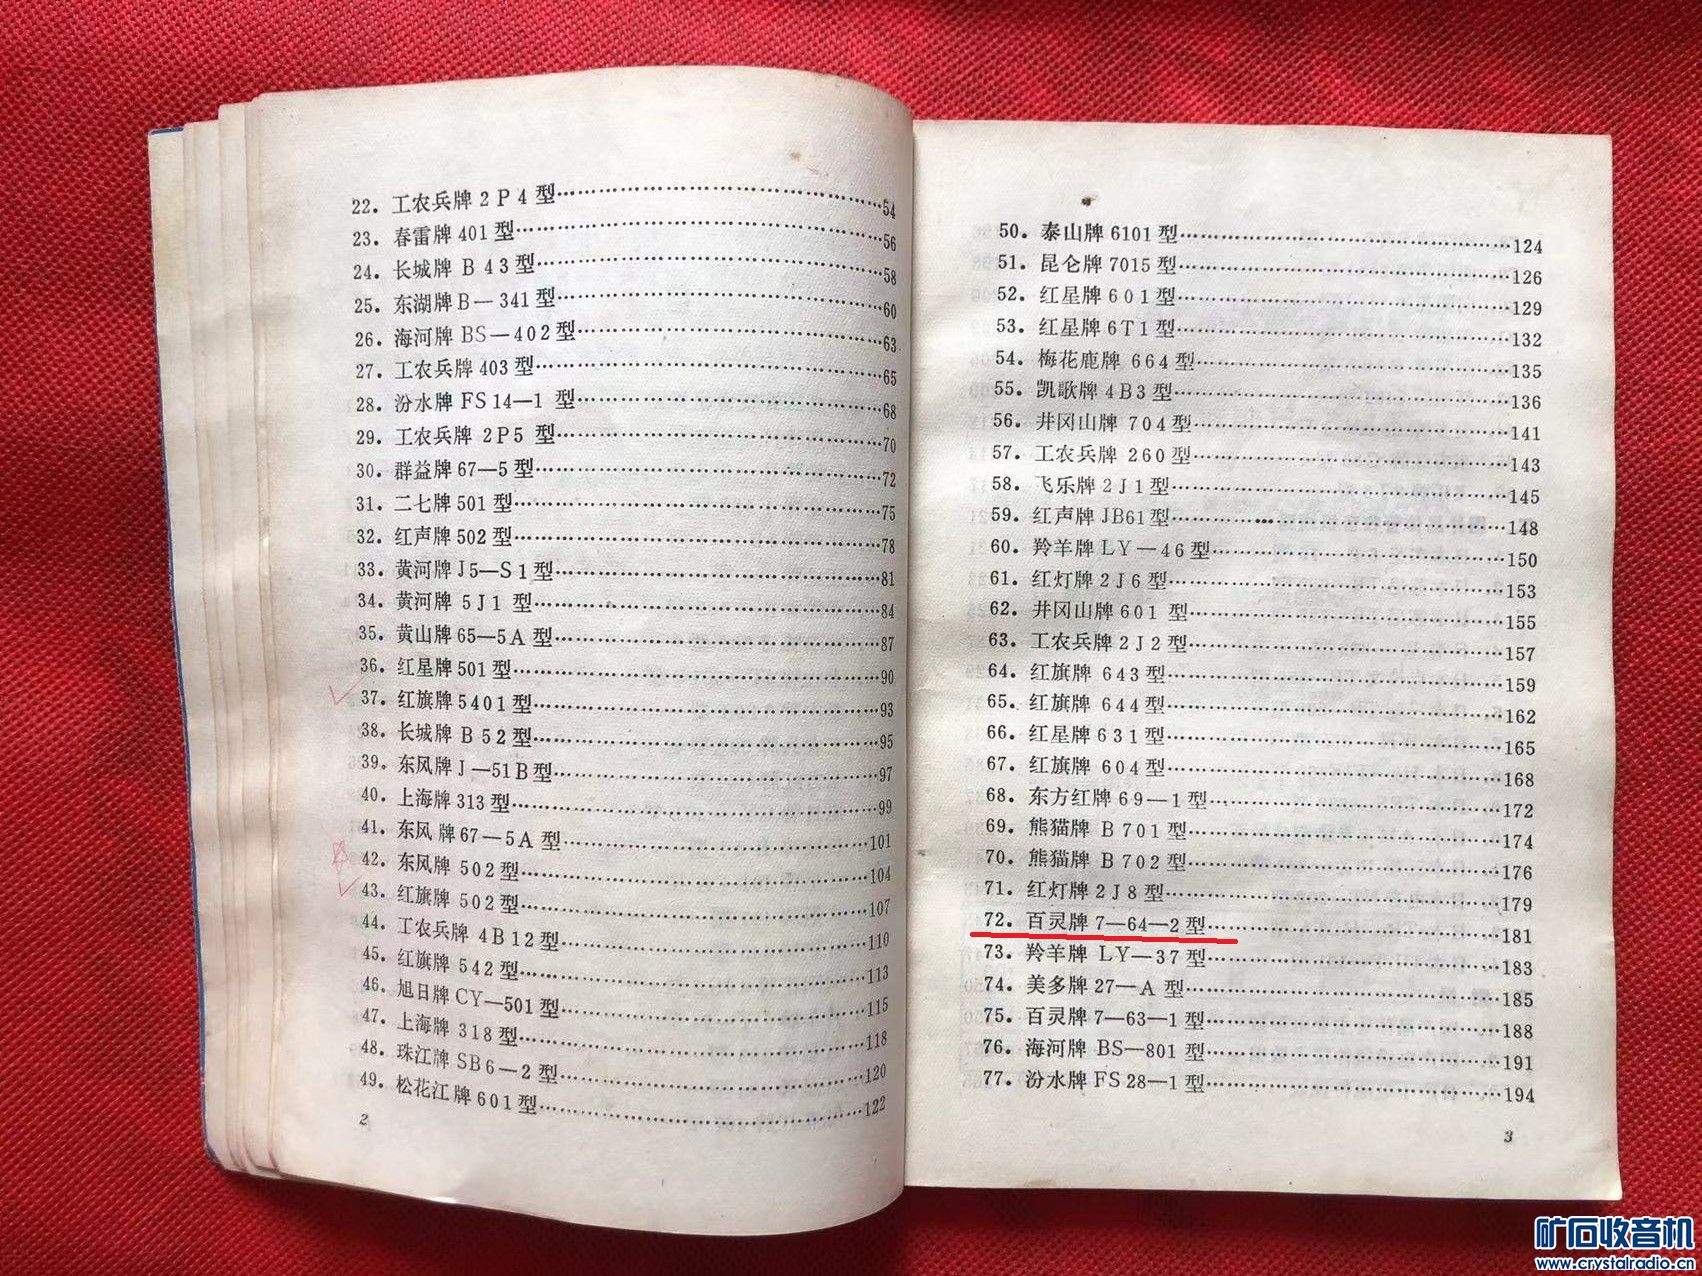 22. 工农兵牌 2P4 型……54
23. 春雷牌 401 型……56
24. 长城牌 B43 型……58
25. 东湖牌 B—341 型……60
26. 海河牌 BS—402 型……63
27. 工农兵牌 403 型……65
28. 汾水牌 FS14—1 型……68
29. 工农兵牌 2P5 型……70
30. 群益牌 67—5 型……72
31. 二七牌 501 型……75
32. 红声牌 502 型……78
33. 黄河牌 J5—S1 型……81
34. 黄河牌 5J1 型……84
35. 黄山牌 65—5A 型……87
36. 红星牌 501 型……90
37. 红旗牌 5401 型……93
38. 长城牌 B52 型……95
39. 东风牌 J—51B 型……97
40. 上海牌 313 型……99
41. 东风牌 67—5A 型……101
42. 东风牌 502 型……104
43. 红旗牌 502 型……107
44. 工农兵牌 4B12 型……110
45. 红旗牌 542 型……113
46. 旭日牌 CY—501 型……115
47. 上海牌 318 型……118
48. 珠江牌 SB6—2 型……120
49. 松花江牌 601 型……122
2
50. 泰山牌 6101 型……124
51. 昆仑牌 7015 型……126
52. 红星牌 601 型……129
53. 红星牌 6T1 型……132
54. 梅花鹿牌 664 型……135
55. 凯歌牌 4B3 型……136
56. 井冈山牌 704 型……141
57. 工农兵牌 260 型……143
58. 飞乐牌 2J1 型……145
59. 红声牌 JB61 型……148
60. 羚羊牌 LY—46 型……150
61. 红灯牌 2J6 型……153
62. 井冈山牌 601 型……155
63. 工农兵牌 2J2 型……157
64. 红旗牌 643 型……159
65. 红旗牌 644 型……162
66. 红星牌 631 型……165
67. 红旗牌 604 型……168
68. 东方红牌 69—1 型……172
69. 熊猫牌 B701 型……174
70. 熊猫牌 B702 型……176
71. 红灯牌 2J8 型……179
72. 百灵牌 7—64—2 型……181
73. 羚羊牌 LY—37 型……183
74. 美多牌 27—A 型……185
75. 百灵牌 7—63—1 型……188
76. 海河牌 BS—801 型……191
77. 汾水牌 FS28—1 型……194
3
矿石收音机
www.crystalradio.cn